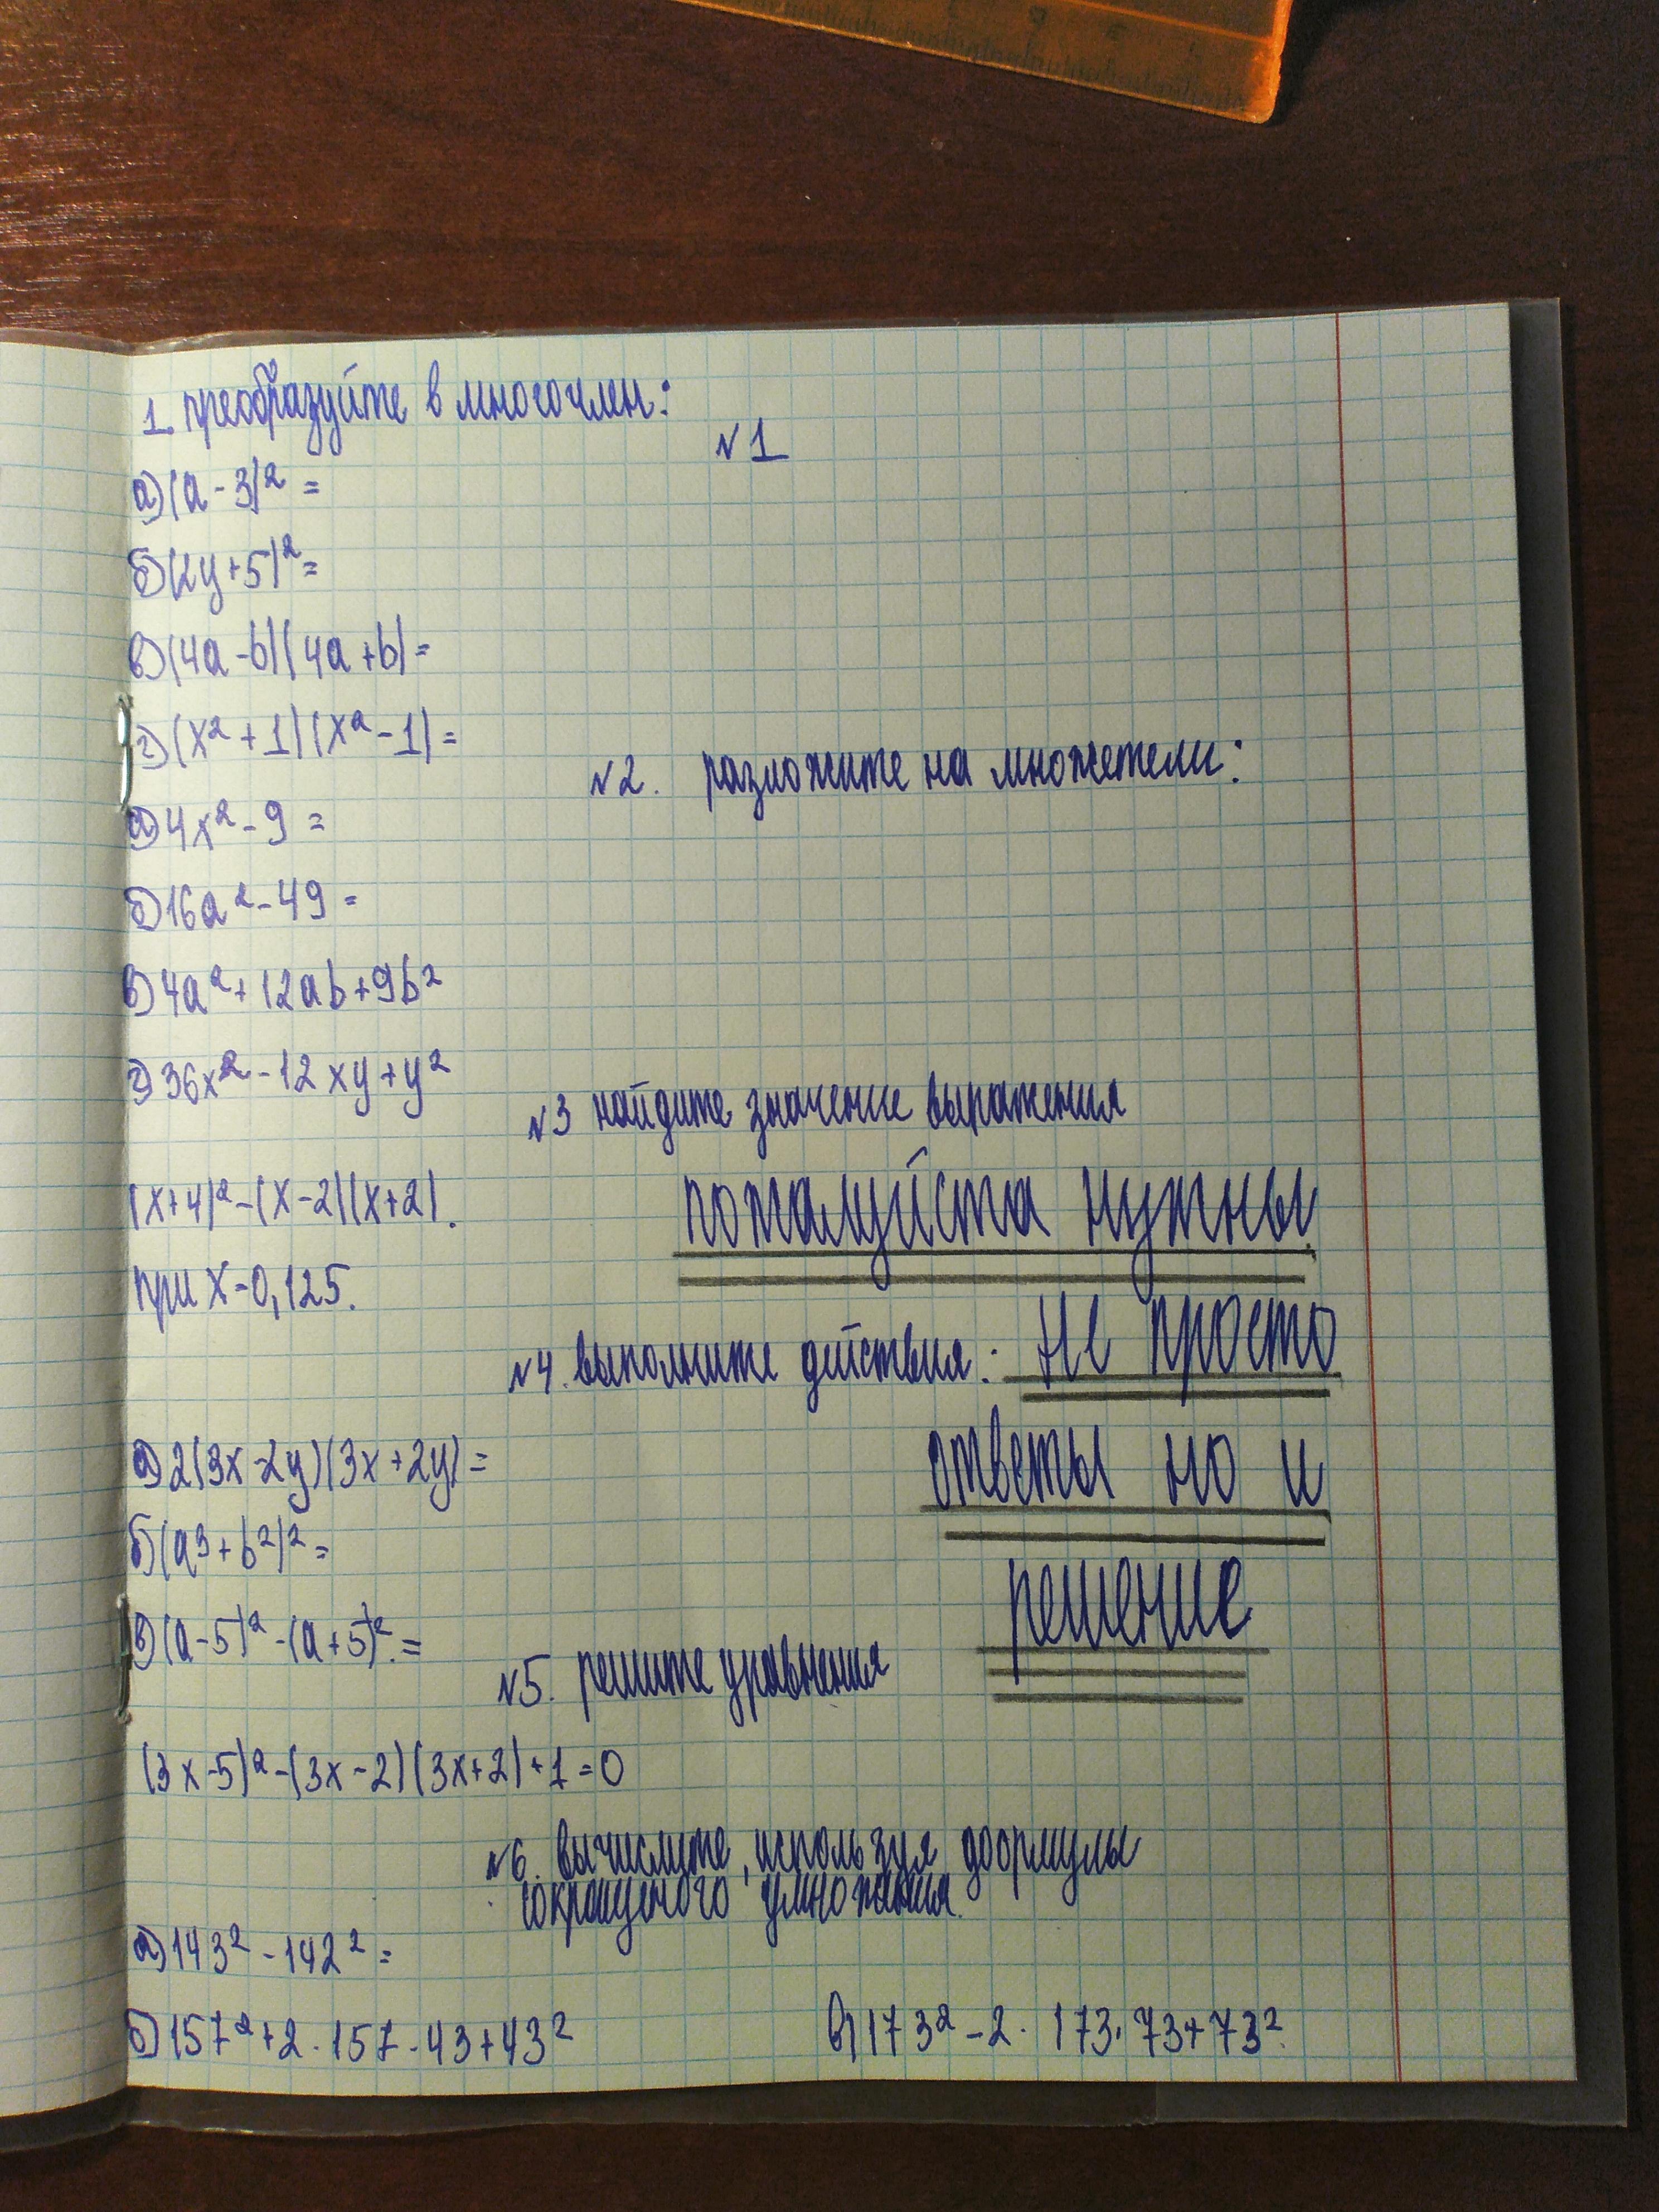 1. преобразуйте в многочлен:
№1
а) (a-3)² =
б) (2y+5)² =
в) (4a-b)(4a+b) =
г) (x²+1)(x²-1) =
№2. разложите на множетели:
а) 4x²-9 =
б) 16a²-49 =
в) 4a²+12ab+9b²
г) 36x²-12xy+y²
№3 найдите значение выражения
(x+4)²-(x-2)(x+2).
при x=0,125.
пожалуйста нужны
не просто
ответы но и
решение
№4. выполните действия:
а) 2(3x-2y)(3x+2y) =
б) (a³+b²)² =
в) (a-5)²-(a+5)². =
№5. решите уравнения
(3x-5)²-(3x-2)(3x+2)+1=0
№6. вычислите, используя формулы
сокращеного умножения.
а) 143²-142² =
б) 157²+2·157·43+43²
в) 173²-2·173·73+73².